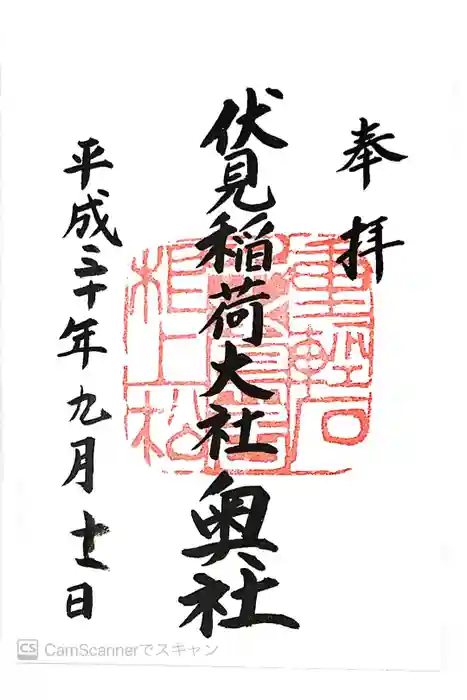 奉拝
伏見稲荷大社奥社
平成三十年九月 日
重輕石
根上松
CS CamScannerでスキャン